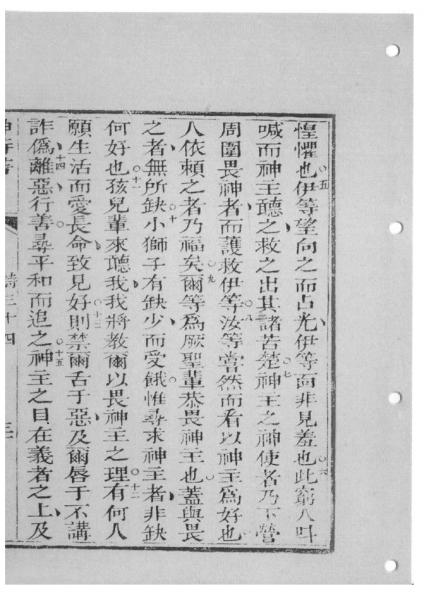 惶懼也○五伊等望向之而占光伊等面非見羞也○六此窮人呌
喊而神主聽之救之出其諸苦楚○七神主之神使者乃下營
周圍畏神者而護救伊等○八汝等嘗然而看以神主爲好也
人依賴之者乃福矣○九爾等爲厥聖輩恭畏神主也蓋與畏
之者無所缺○十小獅子有缺少而受餓惟尋求神主者非缺
何好也○十一孩兒輩來聽我我將教爾以畏神主之理○十二有何人
願生活而愛長命致見好○十三則禁爾舌于惡及爾唇于不講
詐○十四爲離惡行善尋平和而追之○十五神主之目在義者之上及
詩三十四